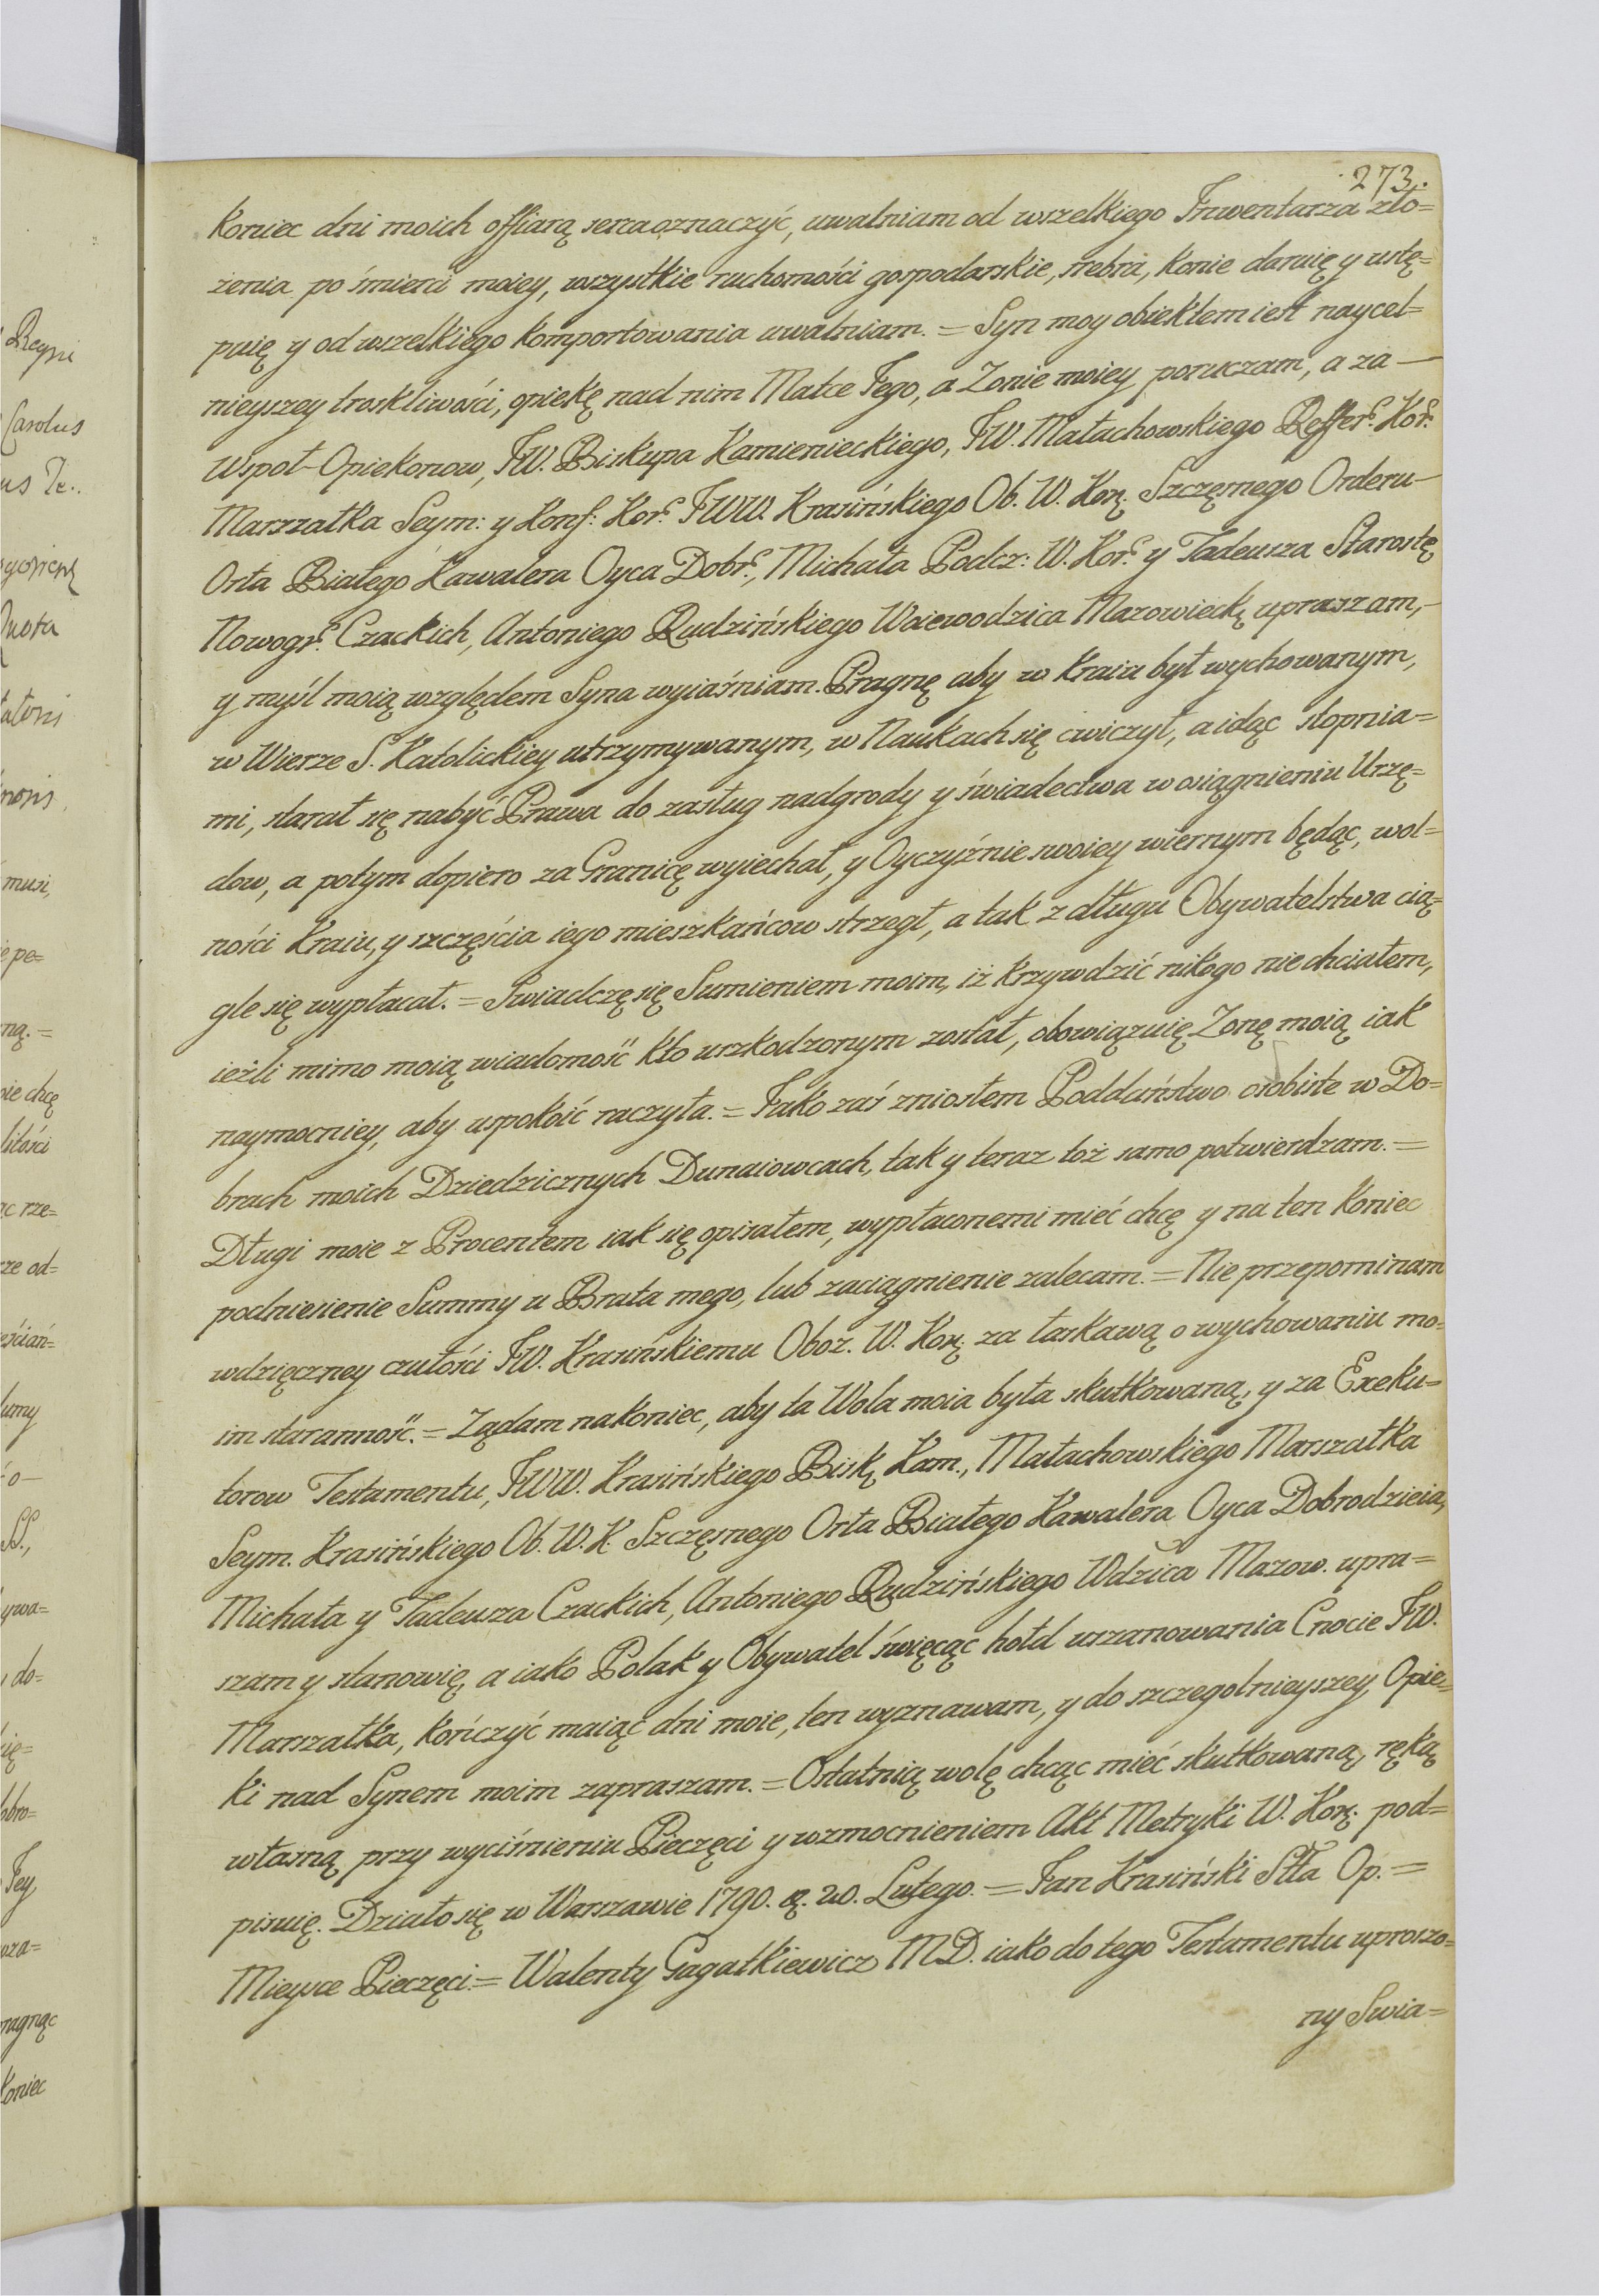 273.
koniec dni moich offiarą serca oznaczyć, uwalniam od wszelkiego Inwentarza zło=
żenia po śmierci moiey, wszystkie ruchomości gospodarskie, srebra, konie daruię y ustę=
puię y od wszelkiego komportowania uwalniam. = Syn moy obiektem iest naycel=
nieyszey troskliwości, opiekę nad nim Matce Jego, a Zonie moiey poruczam, a za —
Wspoł-Opiekonow, JW. Biskupa Kamienieckiego, JW. Małachowskiego Reffer: Kor:
Marszałka Seym: y Konf: Kor: JWW. Krasińskiego Ob. W. Kor: Szczęsnego Orderu —
Orła Białego Kawalera Oyca Dobr:, Michała Podcz: W. Kor: y Tadeusza Starostę
Nowogr: Czackich, Antoniego Rudzińskiego Woiewodzica Mazowieck: upraszam, —
y myśl moią względem Syna wyiaśniam. Pragnę aby w kraiu był wychowanym,
w Wierze S. Katolickiey utrzymywanym, w Naukach się cwiczył, a idąc stopnia=
mi, starał się nabyć Prawa do zasług nadgrody y świadectwa w osiągnieniu Urzę=
dow, a potym dopiero za Granicę wyiechał, y Oyczyźnie swoiey wiernym będąc, wol=
ności Kraiu, y szczęścia iego mieszkańcow strzegł, a tak z długu Obywatelstwa cią=
gle się wypłacał. = Swiadczę się Sumieniem moim, iż krzywdzić nikogo nie chciałem,
ieżli mimo moią wiadomość kto uszkodzonym został, obowiązuię Zonę moią iak
naymocniey, aby uspokoić raczyła. = Jako zaś zniosłem Poddaństwo osobiste w Do=
brach moich Dziedzicznych Dunaiowcach, tak y teraz toż samo potwierdzam. =
Długi moie z Procentem iak się opisałem, wypłaconemi mieć chcę y na ten koniec
podniesienie Summy u Brata mego, lub zaciągnienie zalecam. = Nie przepominam
wdzięczney czułości JW. Krasińskiemu Oboz. W. Kor: za łaskawą o wychowaniu mo=
im staranność. = Ządam nakoniec, aby ta Wola moia była skutkowaną, y za Exeku=
torow Testamentu, JWW. Krasińskiego Bisk: Kam., Małachowskiego Marszałka
Seym. Krasińskiego Ob. W. K. Szczęsnego Orła Białego Kawalera Oyca Dobrodzieia,
Michała y Tadeusza Czackich, Antoniego Rudzińskiego Wdzica Mazow. upra=
szam y stanowię, a iako Polak y Obywatel święcąc hołd uszanowania Cnocie JW.
Marszałka, kończyć maiąc dni moie, ten wyznawam, y do szczegolnieyszey Opie=
ki nad Synem moim zapraszam. = Ostatnią wolę chcąc mieć skutkowaną, ręką
własną przy wyciśnieniu Pieczęci y wzmocnieniem Akt Metryki W. Kor: pod=
pisuię. Działo się w Warszawie 1790. R. 20. Lutego. = Jan Krasiński Stta Op. =
Mieysce Pieczęci = Walenty Gagatkiewicz MD. iako do tego Testamentu uproszo=
ny Swia=
Reyni
Carolus
Quota
musi,
nie chcę
Jey
pragnąc
koniec